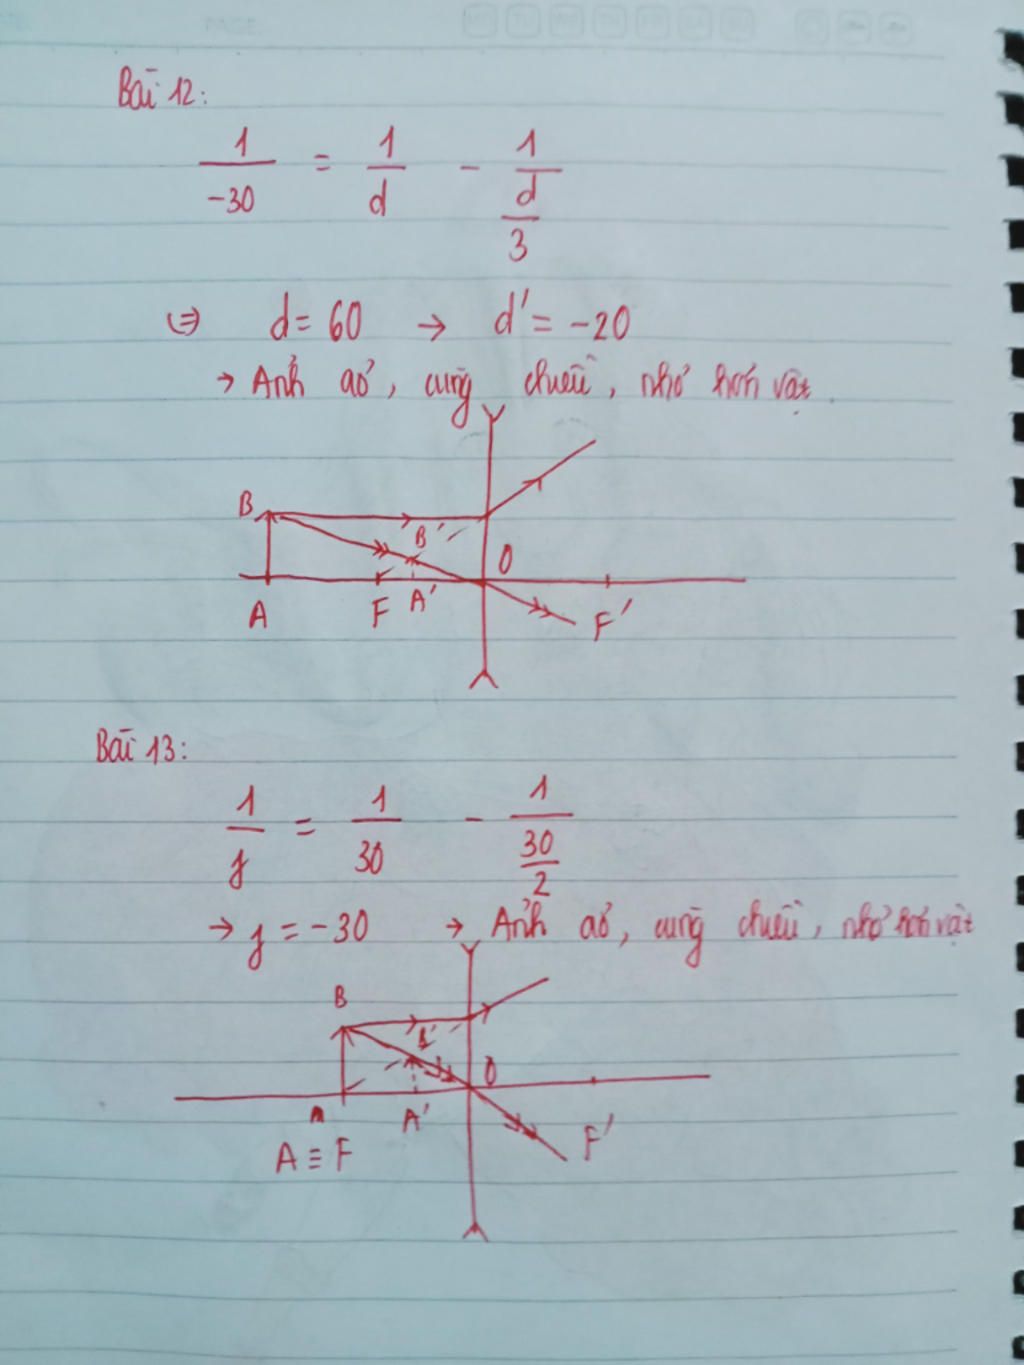 PAGE:
MO TU WE TH FR SA SU
Bài 12:
1/-30 = 1/d - 1/(d/3)
(=) d = 60 → d' = -20
→ Ảnh ảo, cùng chiều, nhỏ hơn vật.
B B' O
A F A' F'
Bài 13:
1/f = 1/30 - 1/(30/2)
→ f = -30 → Ảnh ảo, cùng chiều, nhỏ hơn vật
B B' O
A A' F'
A ≡ F